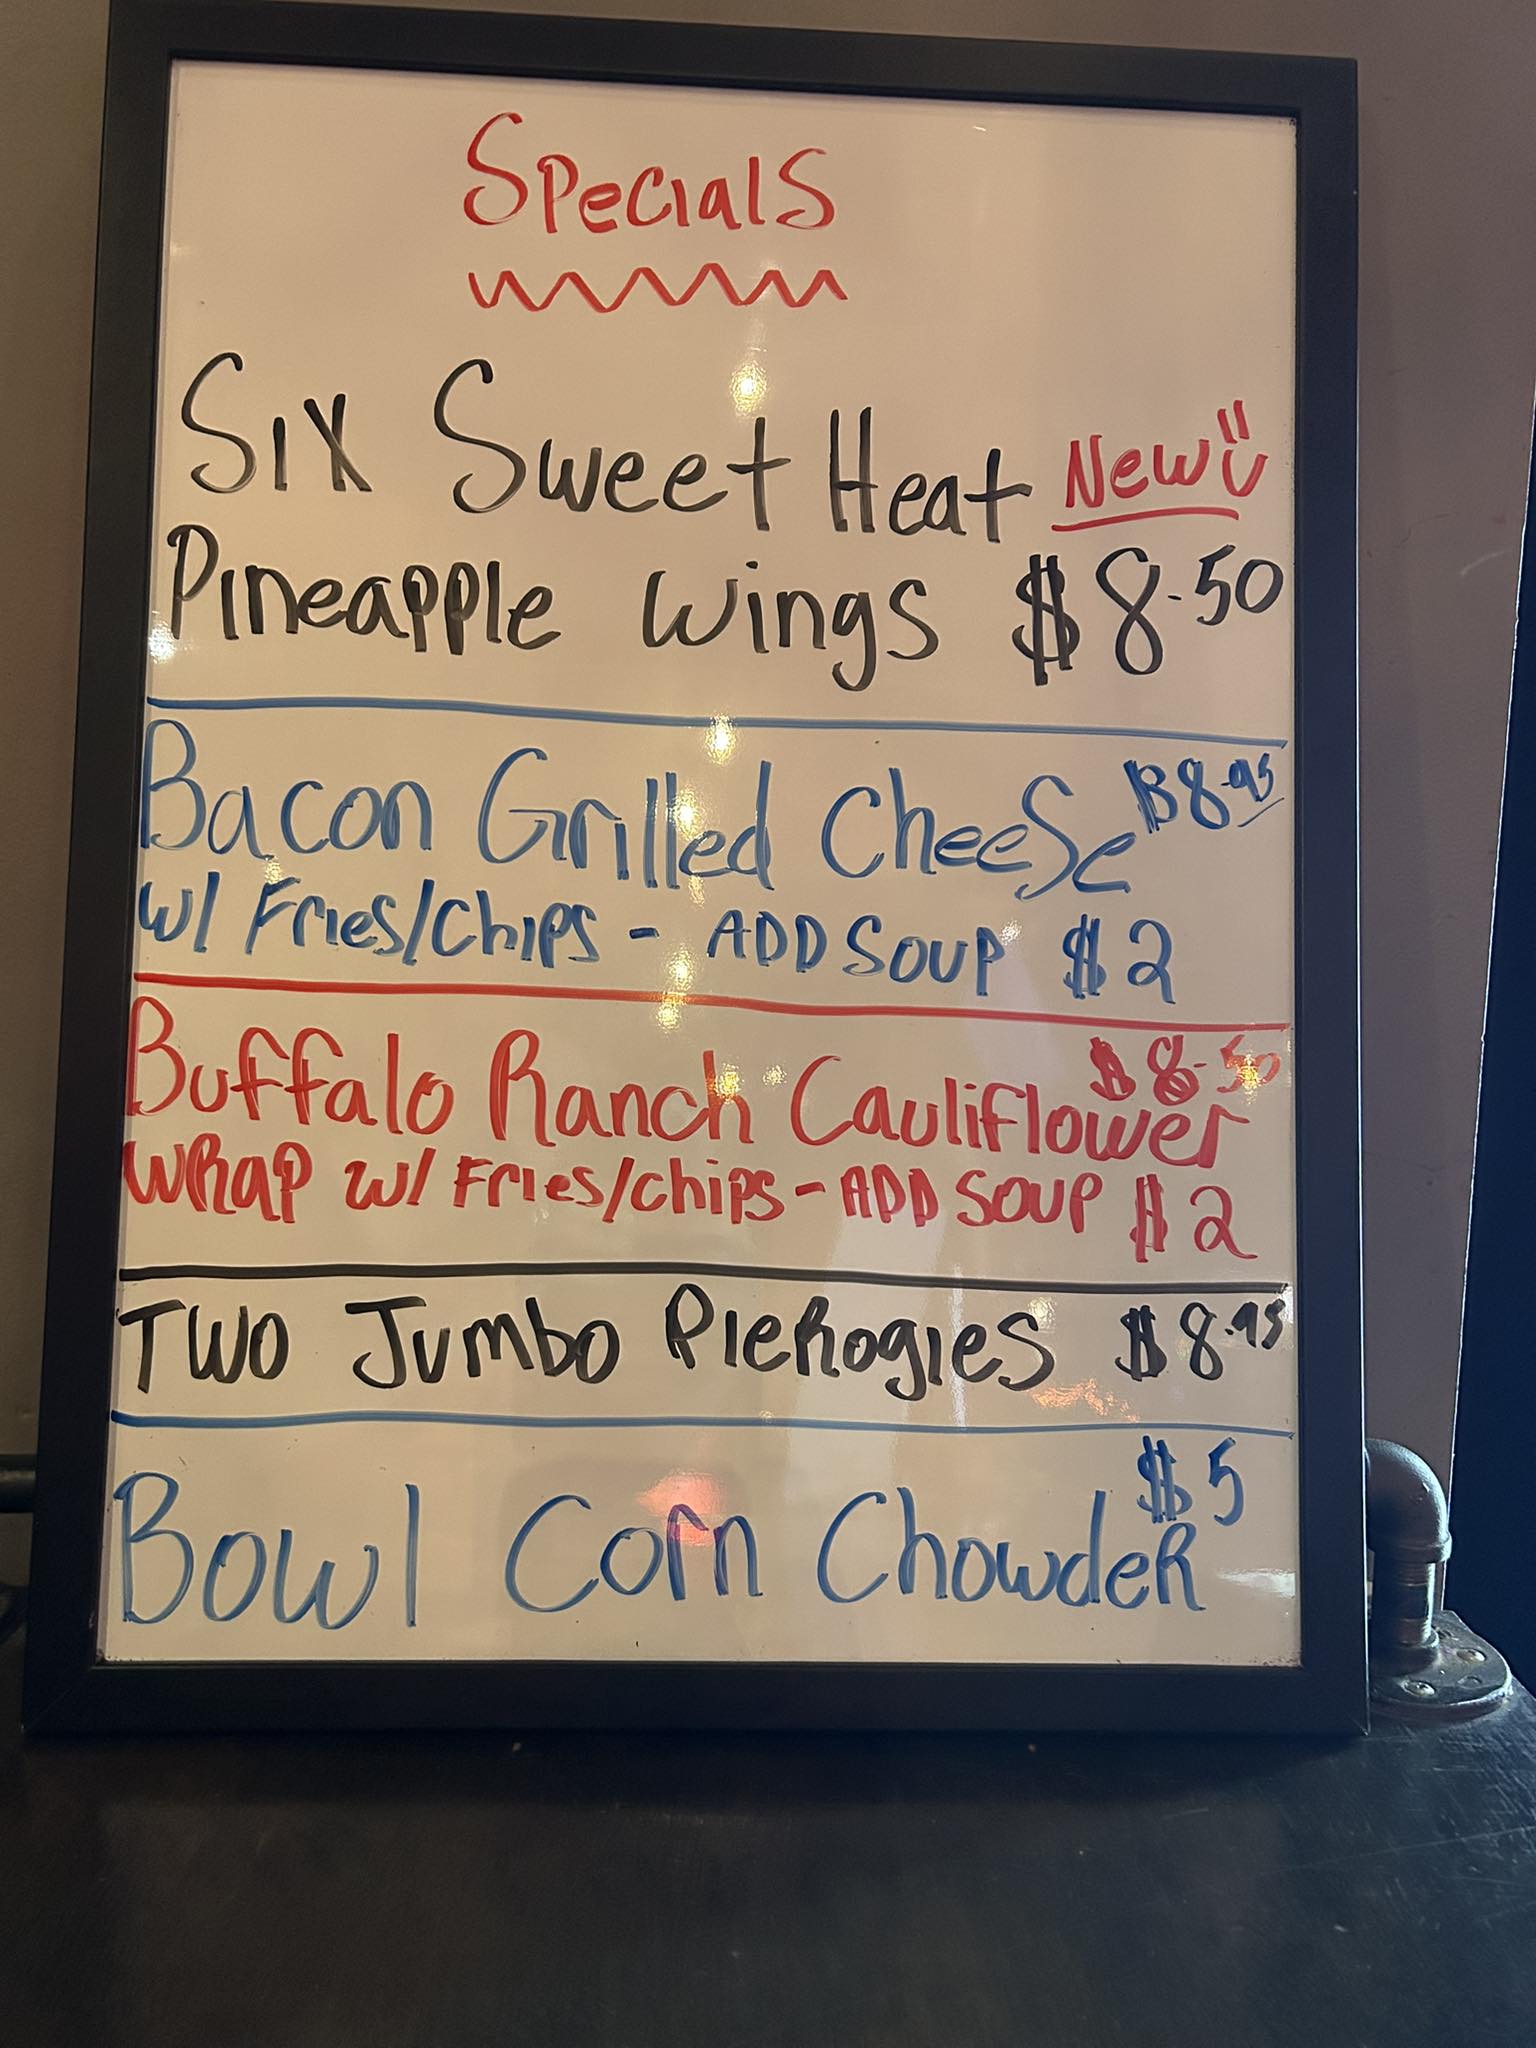 Specials
Six Sweet Heat New
Pineapple Wings $8.50
Bacon Grilled Cheese $8.95
w/ Fries/Chips - ADD SOUP $2
Buffalo Ranch Cauliflower $8.50
WRAP w/ Fries/chips - ADD SOUP $2
TWO Jumbo PIERogies $8.95
Bowl Corn ChowdeR $5